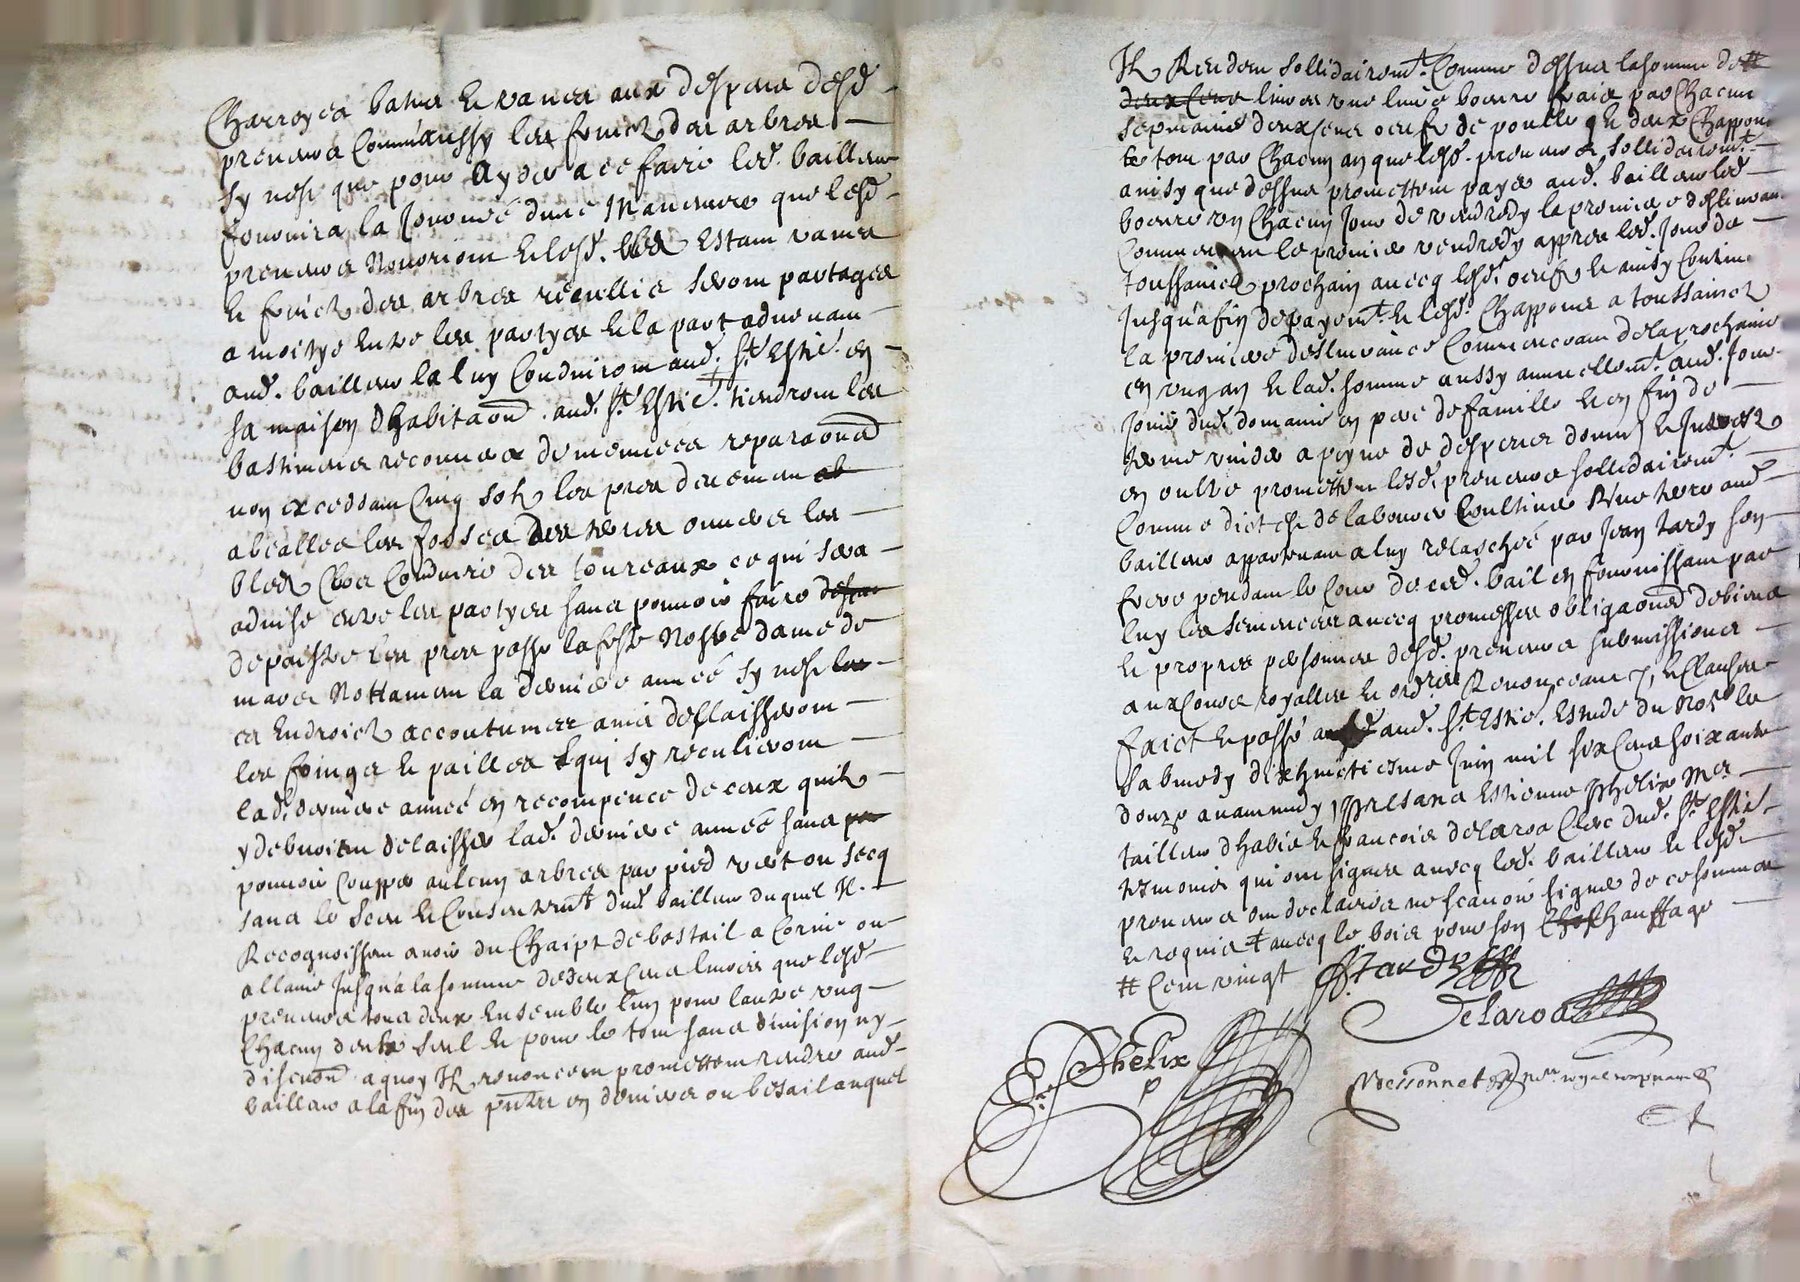 Charroyea batre et vaner aux despans desd.
preneurs comm'aussy les fruictz des arbres
sy nest que pour ayder a ce faire led. bailleur
fournira la journée dune manœuvre que lesd.
preneurs nourriront et lesd. bledz estant vanez
et fruictz des arbres recullis seront partagez
a moitye entre les partyes et la part advenant
aud. bailleur la luy conduiront aud. St Estie. en
sa maison dhabitaon. aud. St Estie. tiendront les
bastimens recouverts de menues reparaons
non exceddant cinq solz les prez
les fossez des terres ouvers les
bledz conduire des tureaux ce qui sera
advisé entre les partyes sans pouvoir faire
depaistre les prez passé la feste Nostre dame de
mars nottamen la derniere année sy nest
es endroictz accoutumez ains deslaisseront
les foings et pailles qui sy reculieront
lad. derniere année en recompence de ceux quilz
y debvoient delaisser lad. derniere année sans
pouvoir coupper aulcun arbres par pied vert ou secq
sans le sceu et consentemt dud. bailleur duquel ilz
recognoissent avoir du chaipt de bestail a corne ou
a llaine jusqu'a la somme de deux cens livres que lesd.
preneurs tous deux ensemble lun pour lautre ung
chacun deulx seul et pour le tout sans division ny
discuon. a quoy ilz renoncent promettent rendre aud.
bailleur a la fin des pntes en deniers ou bestail auquel
Ilz rendent sollidairemt. comme dessus la somme de #
deux cens livres une livre beurre frais par chacune
sepmaine deux cens oeufz de poulle et deux chappons
le tout par chacun an que lesd. preneurs sollidairemt.
ainsy que dessus promettent payer aud. bailleur led.
beurre en chacun jour de vendredy la premiere deslivrance
commencant le premier vendredy appres led. jour de
toussainctz prochain avecq lesd. oeufz et ainsy continuer
jusqu'a fin de payemt. et lesd. chappons a toussainctz
la premiere deslivrance commenceant de la prochaine
en ung an et lad. somme aussy annuellemt. aud. jour
jouir dud. domaine en pere de famille et en fin de
terme vuider a peyne de despens dom. et interestz
en oultre promettent lesd. preneurs sollidairemt.
comme dict est de labourer cultiver une terre aud.
bailleur appartenant a luy relaschée par Jean Tardy son
frere pendant le cours de ced. bail en fournissant par
luy les semences avecq promesses obligaons de biens
et propres personnes desd. preneurs submissions
aux cours royalles et ordres renonceant et clauses
faict et passé aud. St Estie. estude du nore le
sabmedy dixhuictiesme juin mil six cens soixante
douze avant midy presans Estienne Phelix Me
tailleur dhabis et Francois Delaroa clerc dud. St Estie.
tesmoins qui ont signez avecq led. bailleur et lesd.
preneurs ont declairez ne scavoir signer de ce sommez
et requis ‡ avecq le bois pour son chauffage
# cent vingt
Tardy
Delaroa
Phelix
Messonnet nore royal